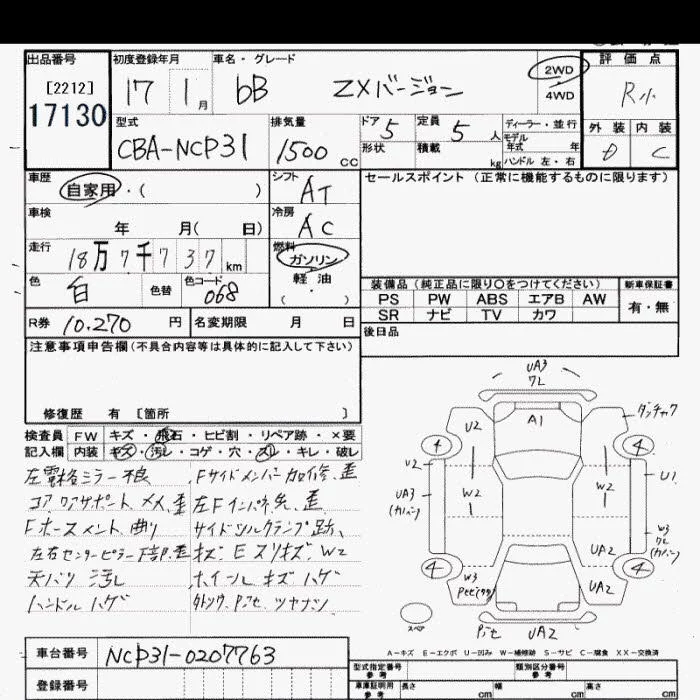 出品番号 初度登録年月 車名・グレード 評価点
[2212] 17 1月 bB ZXバージョン 2WD R小
17130 4WD
型式 排気量 ドア 5 定員 5人 ディーラー・並行 外装 内装
CBA-NCP31 1500cc 形状 積載 kg モデル年式 年 C
ハンドル 左・右
車歴 自家用・( ) シフト AT セールスポイント(正常に機能するものに限ります)
車検 年 月( 日) 冷房 AC
走行 18万7千737km 燃料 ガソリン
色 白 色替 色コード 068 軽油
( )
装備品(純正品に限り○をつけてください) 新車保証書
PS PW ABS エアB AW 有・無
SR ナビ TV カワ
R券 10.270円 名変期限 月 日 後日品
注意事項申告欄(不具合内容等は具体的に記入して下さい)
修復歴 有 [箇所 ]
検査員 FW キズ・飛石・ヒビ割・リペア跡・×要
記入欄 内装 キズ・汚レ・コゲ・穴・スレ・キレ・破レ
左電格ミラー不良 Fサイドメンバー加修、歪
コアサポート、メメ、歪 左Fインパネ先、歪
Fホースメント、曲り サイドシルクランプ跡、
左右センターピラー下部、歪 キズ E スリキズ W2
天バリ 汚レ ホイール キズ ハゲ
ハンドル ハゲ
UA3
7L
A1
U2
ダンチャク
4 4
U2 U1
UA3 W2 W2
(カバン)
W3
7L
(カバン)
UA2
4 4
W3 UA2
スペア
UA2
A=キズ E=エクボ U=凹み W=補修跡 S=サビ C=腐食 XX=交換済
車台番号 NCP31-0207763
登録番号
型式指定番号 参考 類別区分番号 参考
車庫証明用 参考 長さ cm 幅 cm 高さ cm